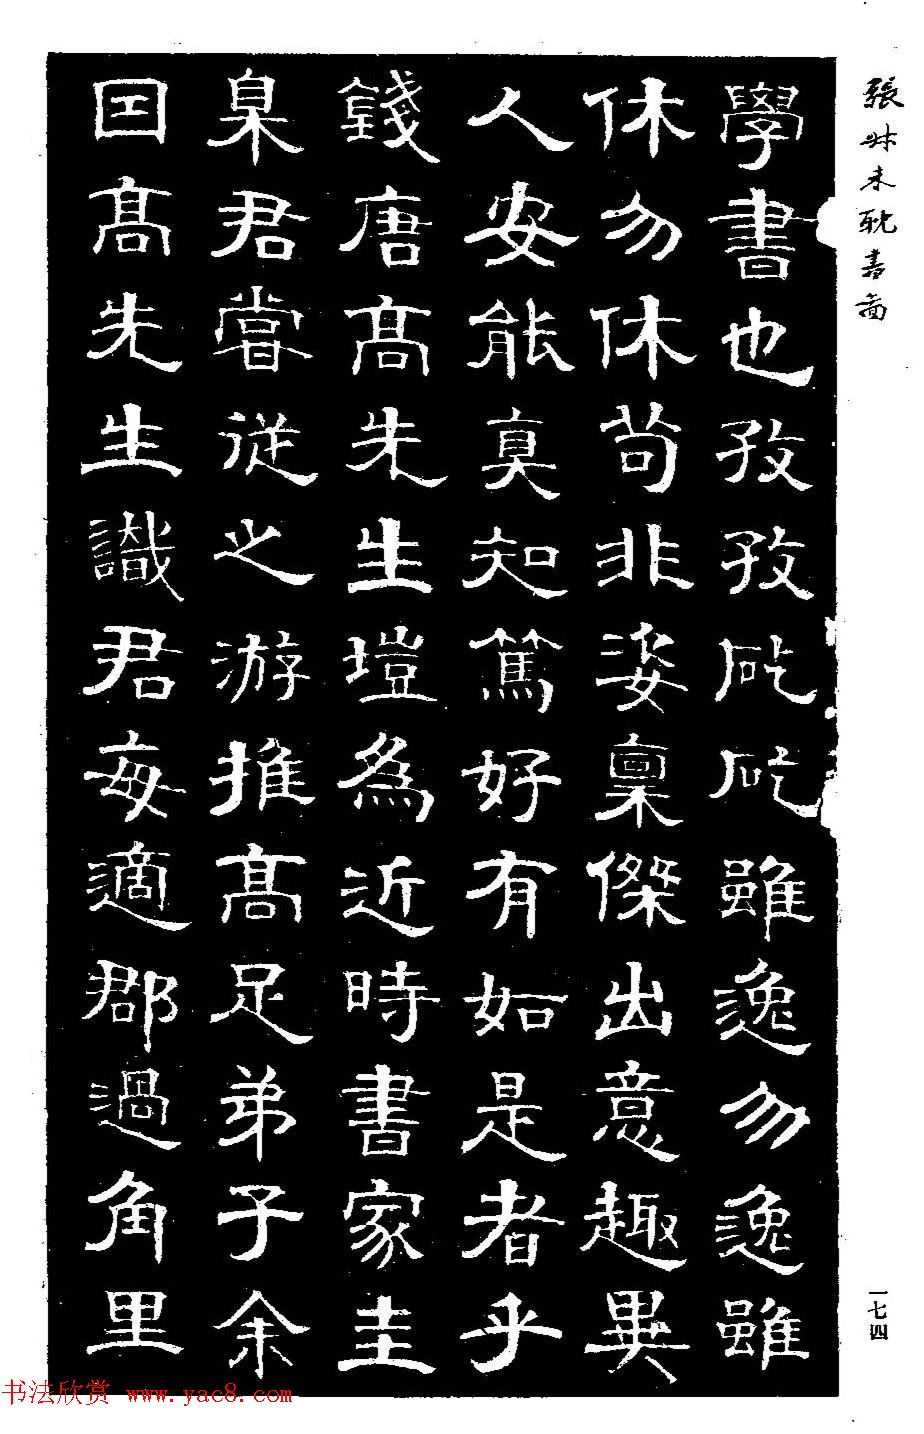 張叔未耽書圖
學書也孜孜矻矻雖逸勿逸雖
休勿休苟非姿稟傑出意趣異
人安能真知篤好有如是者乎
錢唐髙先生塏為近時書家圭
臬君嘗從之游推髙足弟子余
囙髙先生識君每適郡過角里
一七四
书法欣赏 www.yac8.com